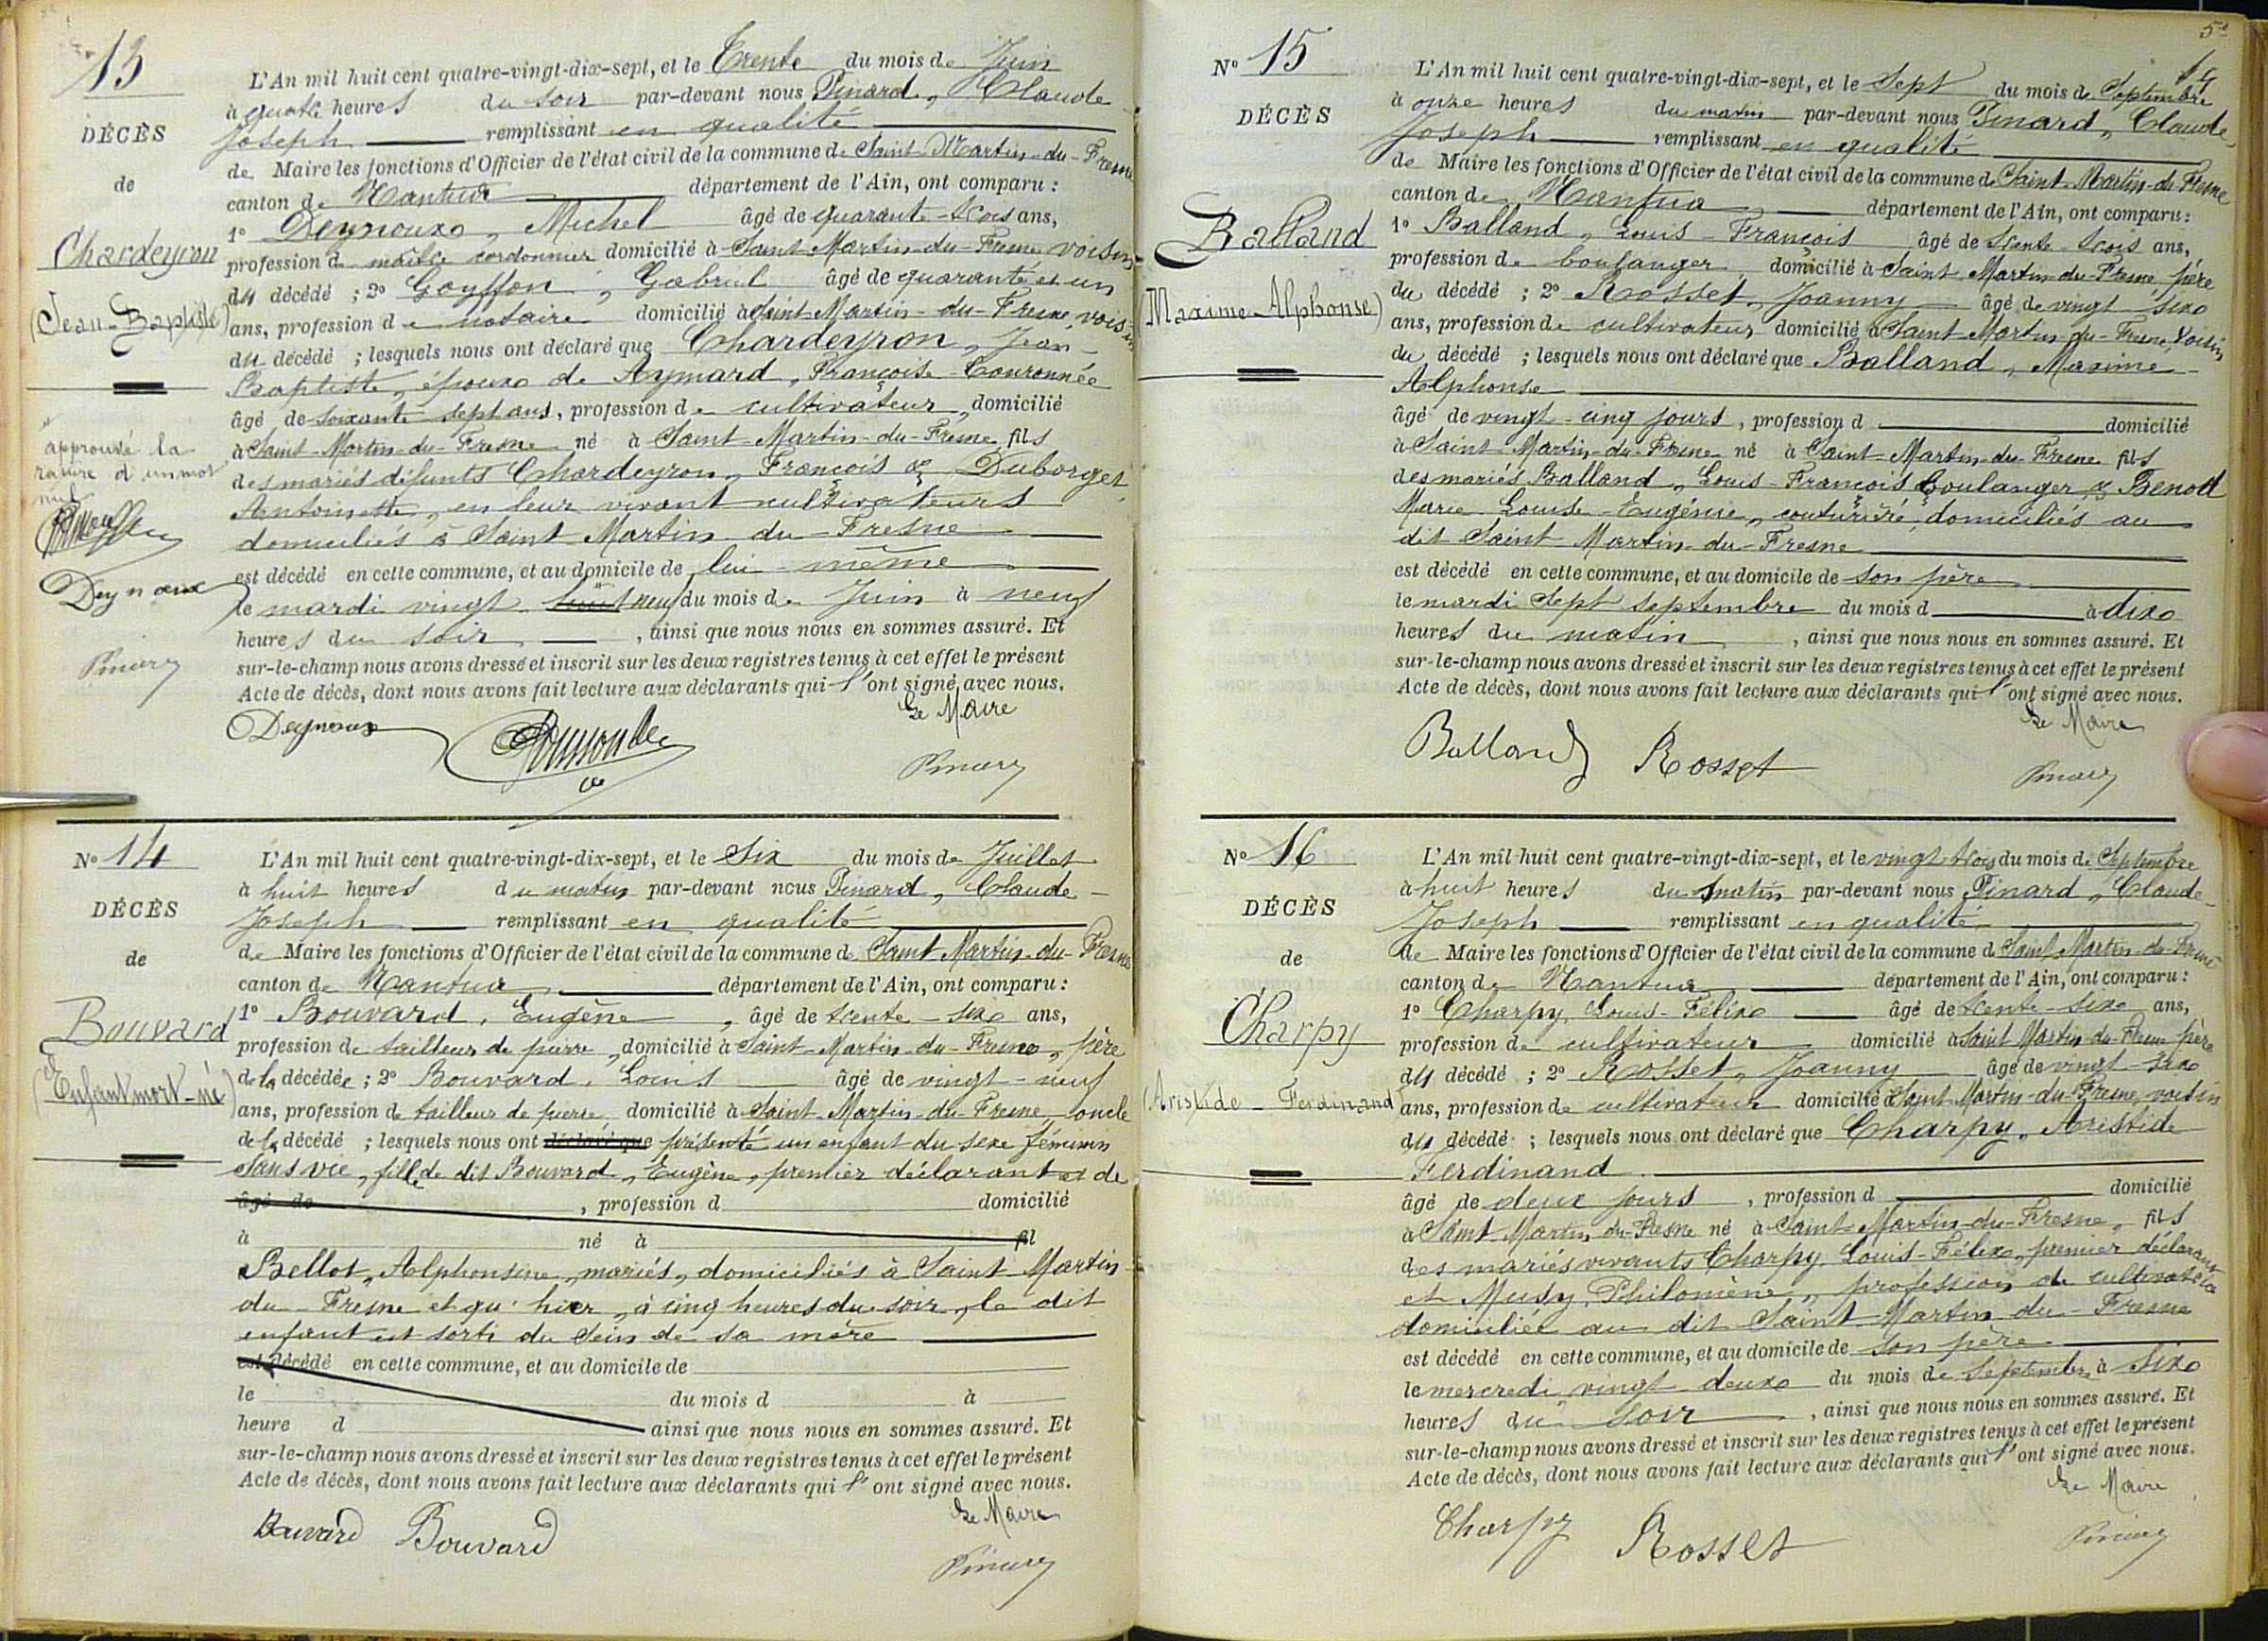 13
DÉCÈS
de
Chardeyron
(Jean-Baptiste)
approuvé la
rature d'un mot
nul
Deynoux
Pinard
L'An mil huit cent quatre-vingt-dix-sept, et le Trente du mois de Juin
à quatre heures du soir par-devant nous Pinard, Claude
Joseph remplissant en qualité
de Maire les fonctions d'Officier de l'état civil de la commune de Saint-Martin-du-Fresne
canton de Nantua département de l'Ain, ont comparu :
1º Deynoux, Michel âgé de quarante-trois ans,
profession de maître cordonnier domicilié à Saint-Martin-du-Fresne voisin
du décédé ; 2º Goyffon, Gabriel âgé de quarante et un
ans, profession de notaire domicilié à Saint-Martin-du-Fresne, voisin
du décédé ; lesquels nous ont déclaré que Chardeyron, Jean-
Baptiste, époux de Aymard, Françoise-Couronnée
âgé de soixante sept ans, profession de cultivateur, domicilié
à Saint-Martin-du-Fresne né à Saint-Martin-du-Fresne fils
des mariés défunts Chardeyron, François & Duborget,
Antoinette, en leur vivant cultivateurs
domiciliés à Saint Martin-du-Fresne
est décédé en cette commune, et au domicile de lui-même
le mardi vingt huit neuf du mois de Juin à neuf
heures du soir, ainsi que nous nous en sommes assuré. Et
sur-le-champ nous avons dressé et inscrit sur les deux registres tenus à cet effet le présent
Acte de décès, dont nous avons fait lecture aux déclarants qui l'ont signé avec nous.
Le Maire
Deynoux Pinard
Nº 14
DÉCÈS
de
Bouvard
(Enfant mort-né)
L'An mil huit cent quatre-vingt-dix-sept, et le Six du mois de Juillet
à huit heures du matin par-devant nous Pinard, Claude-
Joseph remplissant en qualité
de Maire les fonctions d'Officier de l'état civil de la commune de Saint Martin-du-Fresne
canton de Nantua département de l'Ain, ont comparu :
1º Bouvard, Eugène, âgé de trente-six ans,
profession de tailleur de pierre, domicilié à Saint-Martin-du-Fresne, père
de la décédée ; 2º Bouvard, Louis âgé de vingt-neuf
ans, profession de tailleur de pierre, domicilié à Saint-Martin-du-Fresne, oncle
de la décédé ; lesquels nous ont déclaré que présenté un enfant du sexe féminin
sans vie, fille de dit Bouvard, Eugène, premier déclarant et de
âgé de , profession d domicilié
à né à fil
Bellot, Alphonsine, mariés, domiciliés à Saint-Martin-
du-Fresne et qu'hier, à cinq heures du soir, le dit
enfant est sorti du sein de sa mère
est décédé en cette commune, et au domicile de
le du mois d à
heure d ainsi que nous nous en sommes assuré. Et
sur-le-champ nous avons dressé et inscrit sur les deux registres tenus à cet effet le présent
Acte de décès, dont nous avons fait lecture aux déclarants qui l'ont signé avec nous.
Le Maire
Bouvard Bouvard Pinard
5e
Nº 15
DÉCÈS
Balland
(Maxime-Alphonse)
L'An mil huit cent quatre-vingt-dix-sept, et le Sept du mois de Septembre
à onze heures du matin par-devant nous Pinard, Claude,
Joseph remplissant en qualité
de Maire les fonctions d'Officier de l'état civil de la commune de Saint-Martin-du-Fresne
canton de Nantua département de l'Ain, ont comparu :
1º Balland, Louis-François âgé de trente-trois ans,
profession de boulanger, domicilié à Saint Martin-du-Fresne, père
du décédé ; 2º Rosset, Joanny âgé de vingt-six
ans, profession de cultivateur, domicilié à Saint-Martin-du-Fresne, Voisin
du décédé ; lesquels nous ont déclaré que Balland, Maxime-
Alphonse
âgé de vingt-cinq jours, profession d domicilié
à Saint-Martin-du-Fresne né à Saint-Martin-du-Fresne fils
des mariés Balland, Louis-François boulanger & Benoit
Marie-Louise-Eugénie, couturière, domiciliés au
dit Saint-Martin-du-Fresne
est décédé en cette commune, et au domicile de son père
le mardi Sept septembre du mois d à dix
heures du matin, ainsi que nous nous en sommes assuré. Et
sur-le-champ nous avons dressé et inscrit sur les deux registres tenus à cet effet le présent
Acte de décès, dont nous avons fait lecture aux déclarants qui l'ont signé avec nous.
Le Maire
Balland Rosset Pinard
Nº 16
DÉCÈS
de
Charpy
(Aristide-Ferdinand)
L'An mil huit cent quatre-vingt-dix-sept, et le vingt trois du mois de Septembre
à huit heures du matin par-devant nous Pinard, Claude-
Joseph remplissant en qualité
de Maire les fonctions d'Officier de l'état civil de la commune de Saint-Martin-du-Fresne
canton de Nantua département de l'Ain, ont comparu :
1º Charpy, Louis-Félix âgé de trente-six ans,
profession de cultivateur domicilié à Saint Martin-du-Fresne père
du décédé ; 2º Rosset, Joanny âgé de vingt-six
ans, profession de cultivateur domicilié à Saint-Martin-du-Fresne, voisin
du décédé ; lesquels nous ont déclaré que Charpy, Aristide
Ferdinand
âgé de deux jours, profession d domicilié
à Saint-Martin-du-Fresne né à Saint-Martin-du-Fresne, fils
des mariés vivants Charpy, Louis-Félix, premier déclarant
et Musy, Philomène, profession de cultivatrice
domiciliée au dit Saint-Martin-du-Fresne
est décédé en cette commune, et au domicile de son père
le mercredi vingt deux du mois de Septembre à six
heures du soir, ainsi que nous nous en sommes assuré. Et
sur-le-champ nous avons dressé et inscrit sur les deux registres tenus à cet effet le présent
Acte de décès, dont nous avons fait lecture aux déclarants qui l'ont signé avec nous.
Le Maire
Charpy Rosset Pinard